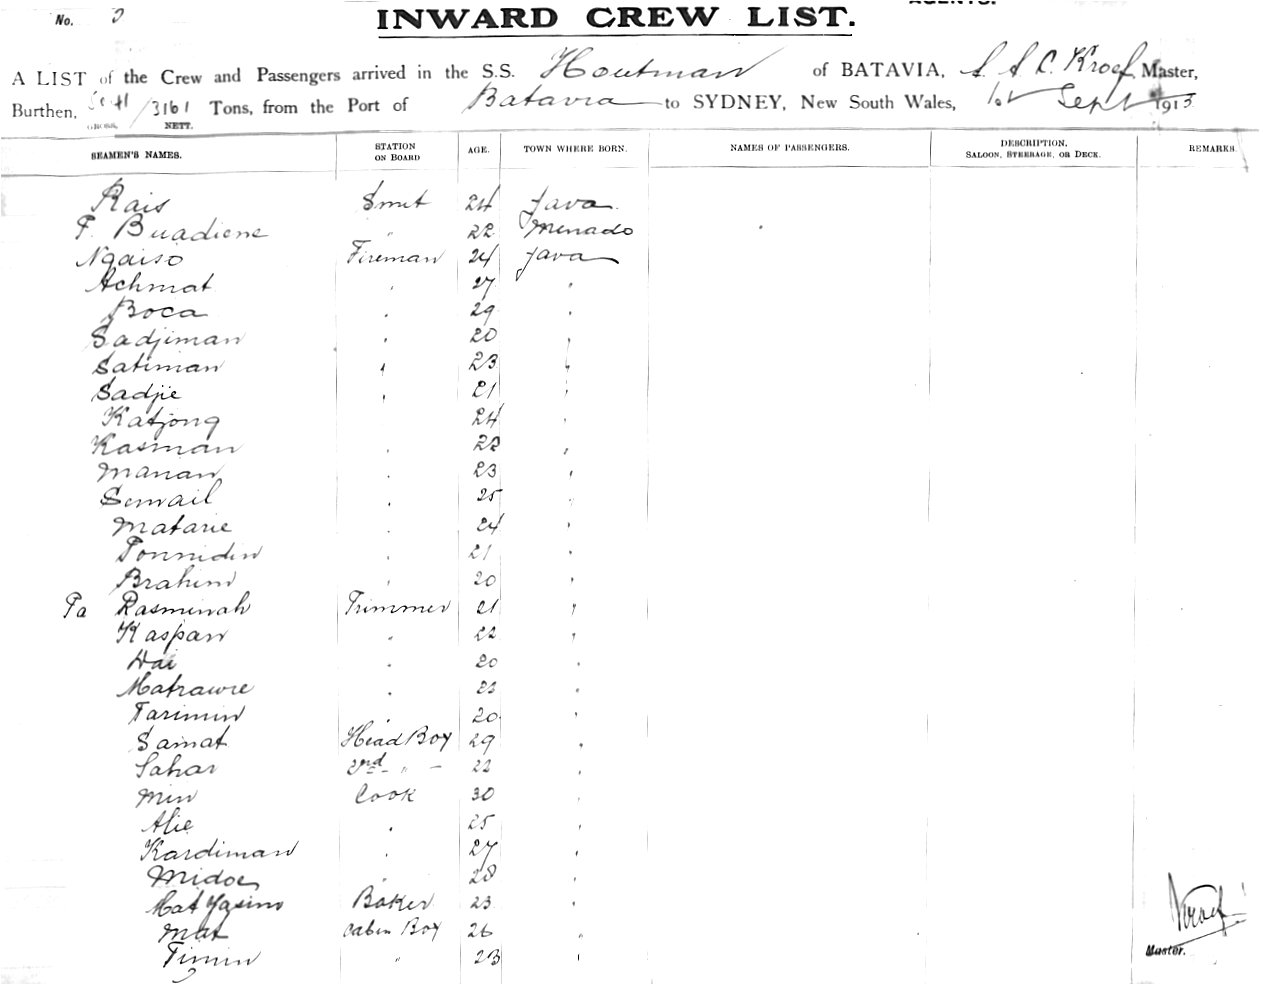 No. 3
INWARD CREW LIST.
A LIST of the Crew and Passengers arrived in the S.S. Houtman of BATAVIA, Kroef, Master,
Burthen, 5041 / 3161 Tons, from the Port of Batavia to SYDNEY, New South Wales, 1st Sept 1913
GROSS. NETT.
SEAMEN'S NAMES. STATION ON BOARD AGE. TOWN WHERE BORN. NAMES OF PASSENGERS. DESCRIPTION, SALOON, STEERAGE, OR DECK. REMARKS
Rais Smit 24 Java
F. Buadiene " 22 Menado
Ngaiso Fireman 24 Java
Achmat " 27 "
Boca " 29 "
Sadjiman " 20 "
Satiman " 23 "
Sadjie " 21 "
Katjong 24 "
Kasman 22 "
Manan " 23 "
Semail " 25 "
Matarie " 24 "
Ponnidin " 21 "
Brahim " 20 "
Pa Rasminah Trimmer 21 "
Kaspan " 22 "
Hai " 20 "
Matrawie " "
Tarimin " 20 "
Samat Head Boy 29 "
Sahar 2nd " 22 "
Min Cook 30 "
Alie " 25 "
Kardiman " 27 "
Midoe " 28 "
Mat Yasim Baker 23 "
Mat Cabin Boy 26 "
Timin " 23 "
Kroef
Master.